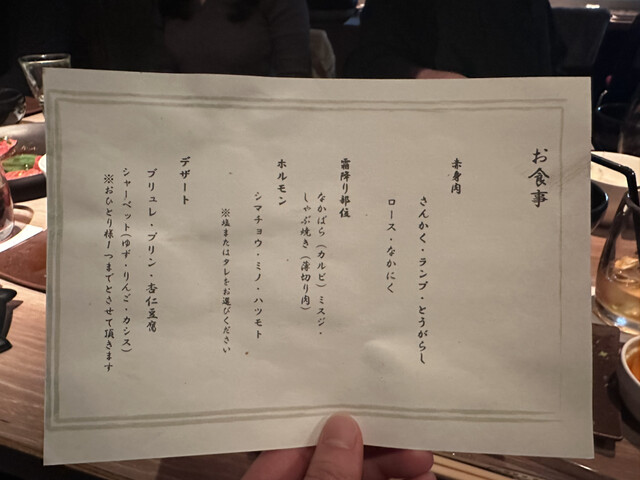 お食事
赤身肉
さんかく・ランプ・とうがらし
ロース・なかにく
霜降り部位
なかばら（カルビ）ミスジ・
しゃぶ焼き（薄切り肉）
ホルモン
シマチョウ・ミノ・ハツモト
※塩またはタレをお選びください
デザート
ブリュレ・プリン・杏仁豆腐
シャーベット（ゆず・りんご・カシス）
※おひとり様1つまでとさせて頂きます